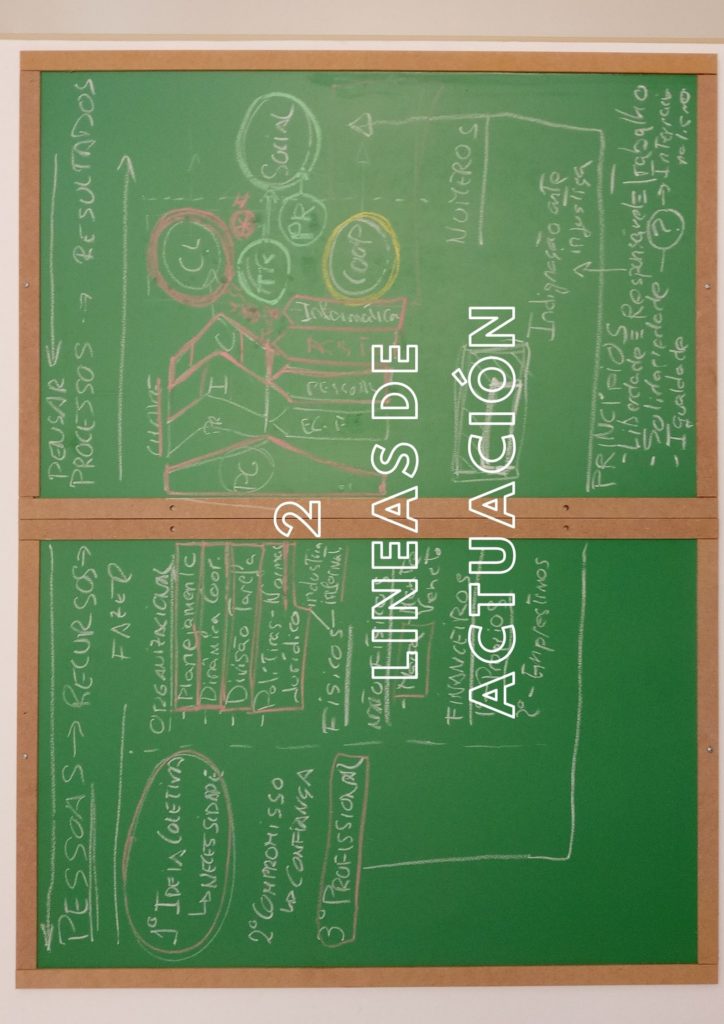 2
LINEAS DE
ACTUACIÓN
PESSOAS → RECURSOS →
FAZER
1º IDEIA COLETIVA
↳ NECESSIDADE
2º COMPROMISSO
↳ CONFIANÇA
3º PROFISSIONAL
ORGANIZACIONAL
- Planejamento
- Dinâmica Coor.
- Divisão Tarefa
- Políticas - Normas
Jurídico
Físicos
industria
FINANCEIROS
2º - Empréstimos
PENSAR
PROCESSOS → RESULTADOS
PC
PR
I
C
Informática
PESSOAL
CL
PR
SOCIAL
COOP
NUMEROS
Indignação ante
injustiça
PRINCÍPIOS
- Liberdade = Responsável = Trabalho
- Solidariedade → ? → Interna
- Igualdade